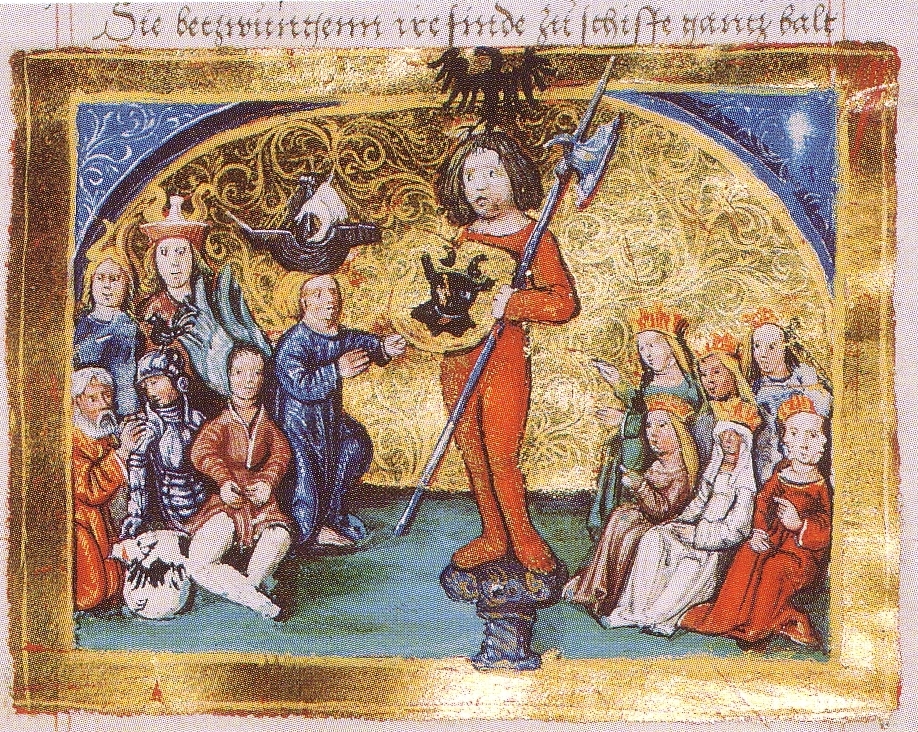 Sie betzwüngenn ire feinde zü schiffe gantz balt